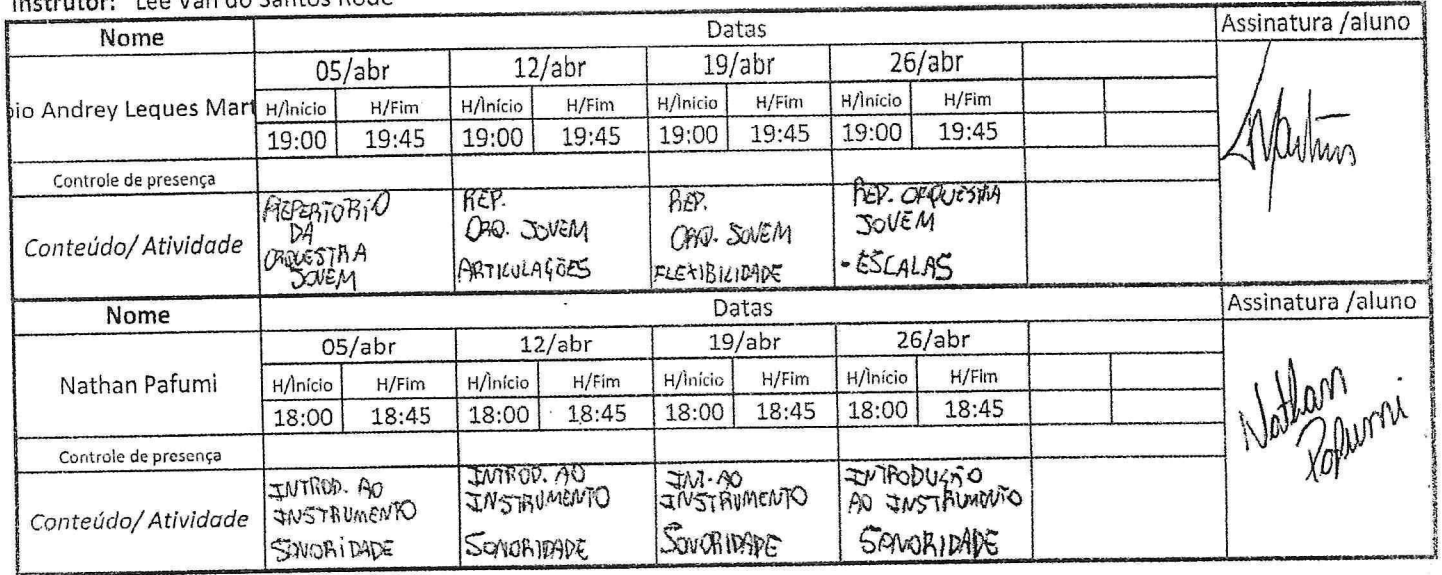 Instrutor: Lee Van do Santos Rode
Nome Datas Assinatura /aluno
05/abr 12/abr 19/abr 26/abr
bio Andrey Leques Mart H/Início H/Fim H/Início H/Fim H/Início H/Fim H/Início H/Fim
19:00 19:45 19:00 19:45 19:00 19:45 19:00 19:45
Martins
Controle de presença
Conteúdo/ Atividade
REPERTORIO
DA
ORQUESTRA
JOVEM
REP.
ORQ. JOVEM
ARTICULAÇÕES
REP.
ORQ. JOVEM
FLEXIBILIDADE
REP. ORQUESTRA
JOVEM
- ESCALAS
Nome Datas Assinatura /aluno
05/abr 12/abr 19/abr 26/abr
Nathan Pafumi H/Início H/Fim H/Início H/Fim H/Início H/Fim H/Início H/Fim
18:00 18:45 18:00 18:45 18:00 18:45 18:00 18:45
Nathan
Pafumi
Controle de presença
Conteúdo/ Atividade
INTROD. AO
INSTRUMENTO
SONORIDADE
INTROD. AO
INSTRUMENTO
SONORIDADE
INT. AO
INSTRUMENTO
SONORIDADE
INTRODUÇÃO
AO INSTRUMENTO
SONORIDADE